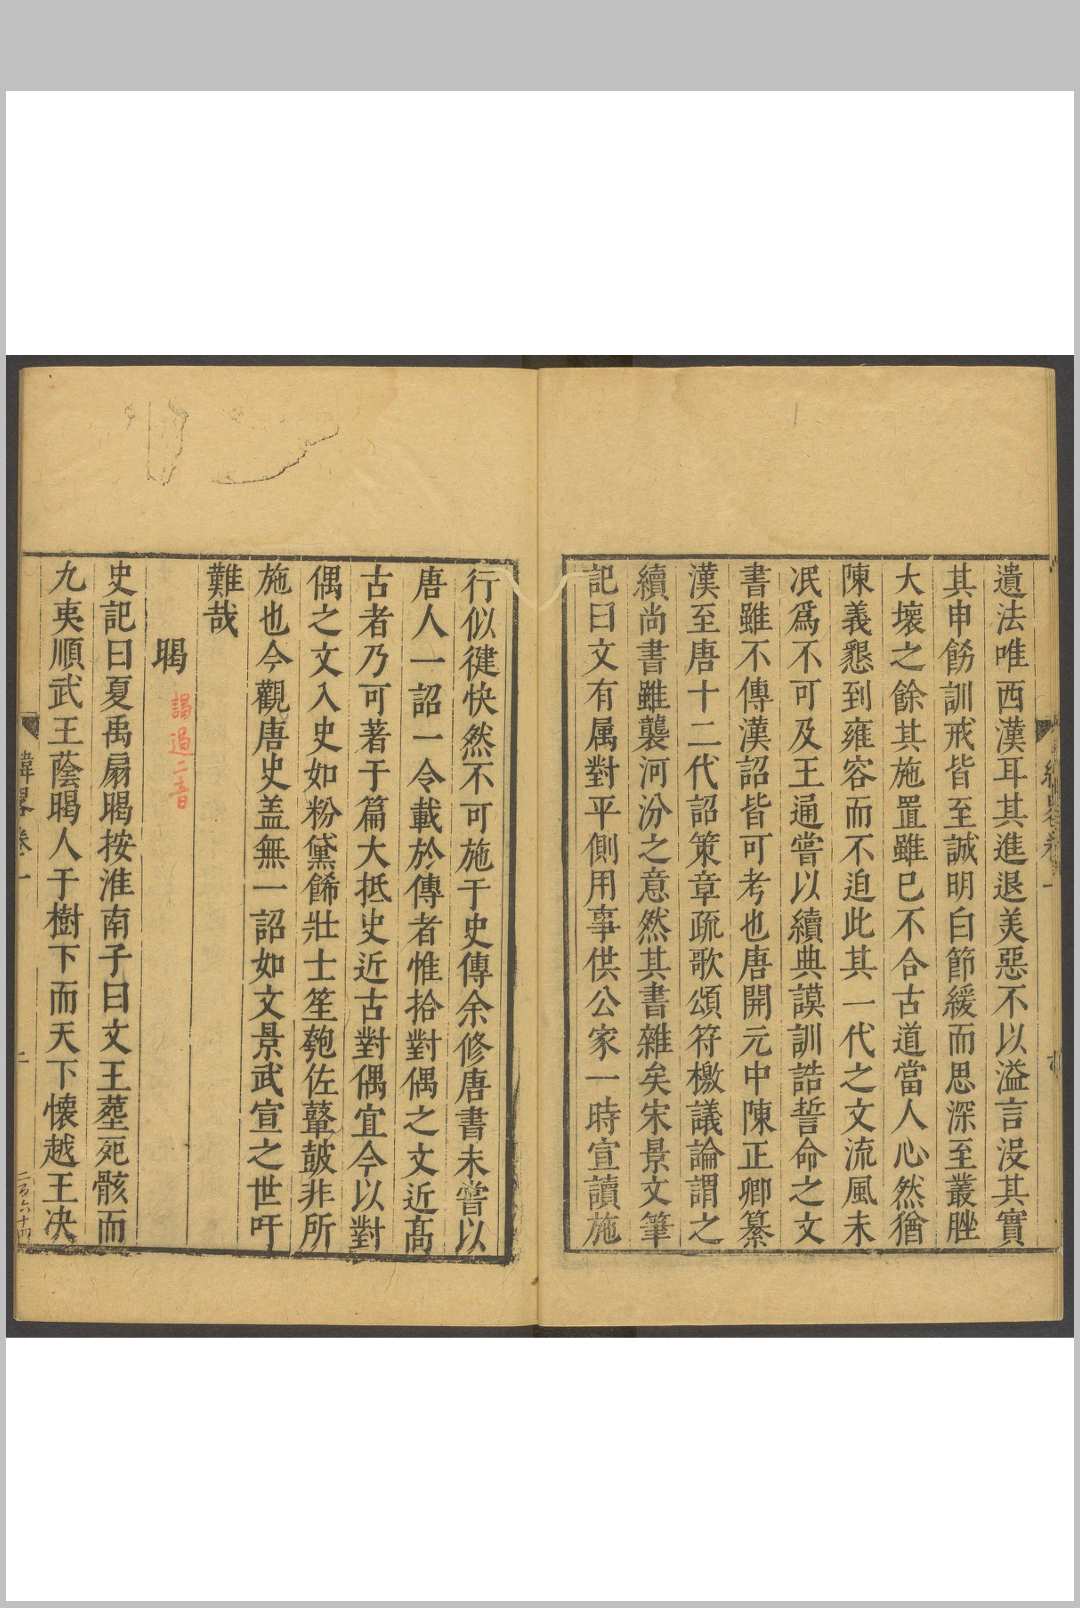 遺法唯西漢耳其進退美惡不以溢言没其實
其申飭訓戒皆至誠明白節緩而思深至叢脞
大壞之餘其施置雖已不合古道當人心然猶
陳義懇到雍容而不迫此其一代之文流風未
泯爲不可及王通嘗以續典謨訓誥誓命之文
書雖不傳漢詔皆可考也唐開元中陳正卿纂
漢至唐十二代詔策章疏歌頌符檄議論謂之
續尚書雖襲河汾之意然其書雜矣宋景文筆
記曰文有属對平側用事供公家一時宣讀施
行似徤快然不可施于史傳余修唐書未嘗以
唐人一詔一令載於傳者惟拾對偶之文近髙
古者乃可著于篇大抵史近古對偶宜今以對
偶之文入史如粉黛餙壯士笙匏佐鼙皷非所
施也今觀唐史盖無一詔如文景武宣之世吁
難哉
暍
謁過二音
史記曰夏禹扇暍按淮南子曰文王塟死骸而
九夷順武王蔭暍人于樹下而天下懐越王决
緯畧卷一
二